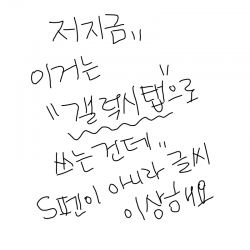 저지금,,
이거는
"갤럭시탭"으로
쓰는건데,,
S펜이 아니라 글씨
이상해요